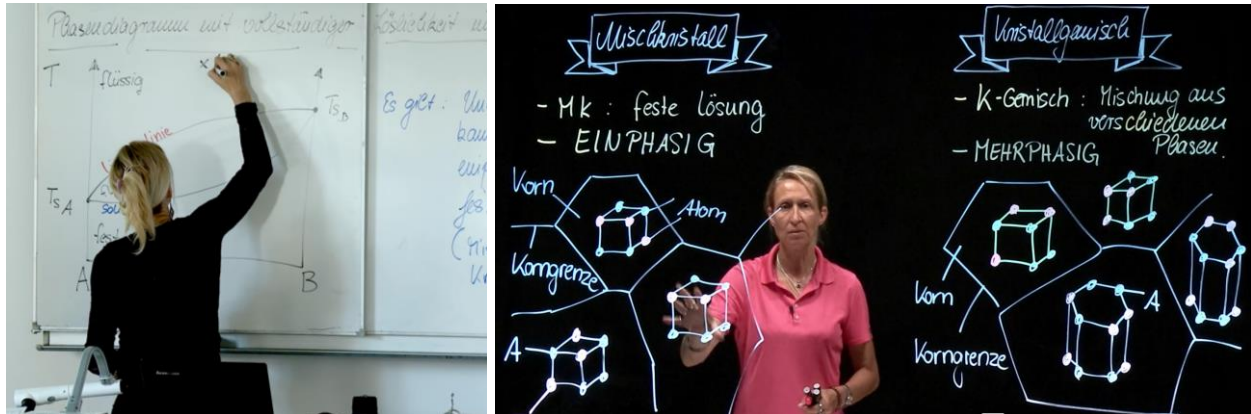 Phasendiagramm mit vollständiger Löslichkeit
T
flüssig
x
Ts_B
linie
Ts_A
sol
fest
A
B
Es gilt:
Mischkristall
- MK : feste Lösung
- EINPHASIG
Korn
Atom
Korngrenze
A
Kristallgemisch
- K-Gemisch : Mischung aus
verschiedenen
Phasen.
- MEHRPHASIG
Korn
A
Korngrenze